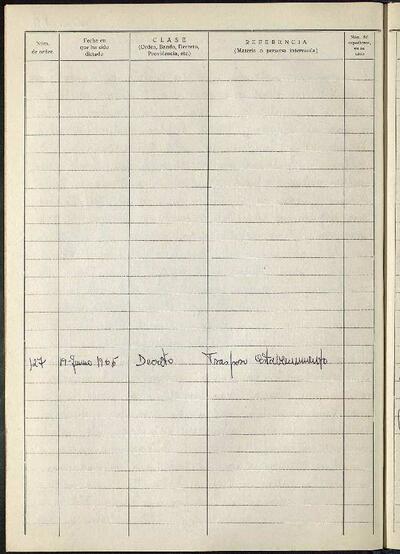 Núm. de orden
Fecha en que ha sido dictado
CLASE
(Orden, Bando, Decreto, Providencia, etc.)
REFERENCIA
(Materia o persona interesada)
Núm. del expediente, en su caso
127 19 Junio 1965 Decreto Traspaso Establecimiento